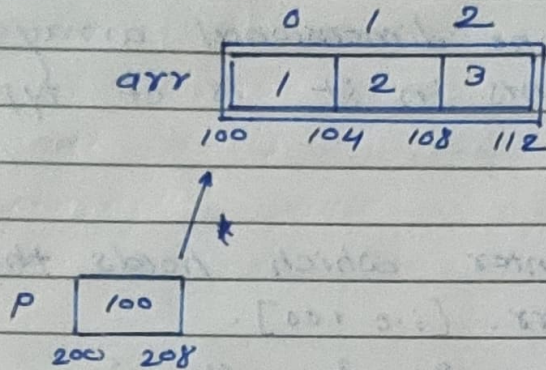 0 1 2
arr 1 2 3
100 104 108 112
*
P 100
200 208